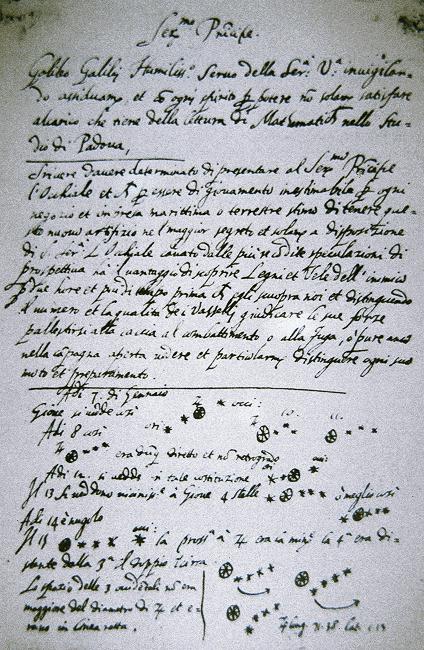 Ser.mo Principe.
Galileo Galilei Humiliss.o Servo della Ser.a V.a invigilan-
do assiduam.te et cõ ogni spirito p potere nõ solam.te satisfare
al carico che tiene della lettura di Mathematich nello Stu-
dio di Padova,
Scrivere d'avere determinato di presentare al Ser.mo Principe
l'Occhiale et p essere di giovamento inestimabile p ogni
negozio et impresa marittima o terrestre stima di tenere que-
sto nuovo artifizio nel maggior segreto et solam.te a disposizione
di S. Ser.a L'Occhiale cavato dalle più recondite speculazioni di
prospettiva ha il vantaggio di scoprire Legni et Vele dell'inimico
p due hore et più di tempo prima ch egli scuopra noi et distinguendo
il numero et la qualità de i Vasselli giudicare le sue forze
pallestirsi alla caccia al combattimento o alla fuga, o pure anco
nella capagna aperta vedere et particolarm.te distinguere ogni suo
moto et preparamento.
Adi 7. di Gennaio
Giove si vede così
Adi 8 così
era dūq diretto et nõ retrogrado
Adi 12. si vedde in tale costituzione
Il 13 si veddono viciniss.e a Giove 4 stelle * ò meglio così
Adi 14 è nugolo
Il 15
la pross.a à 4 era la min.e la 4.a era di-
stante dalla 3.a il doppio
Lo spazio delle 3 occidentali nõ era
maggiore del diametro di 4 et e-
rano in linea retta.